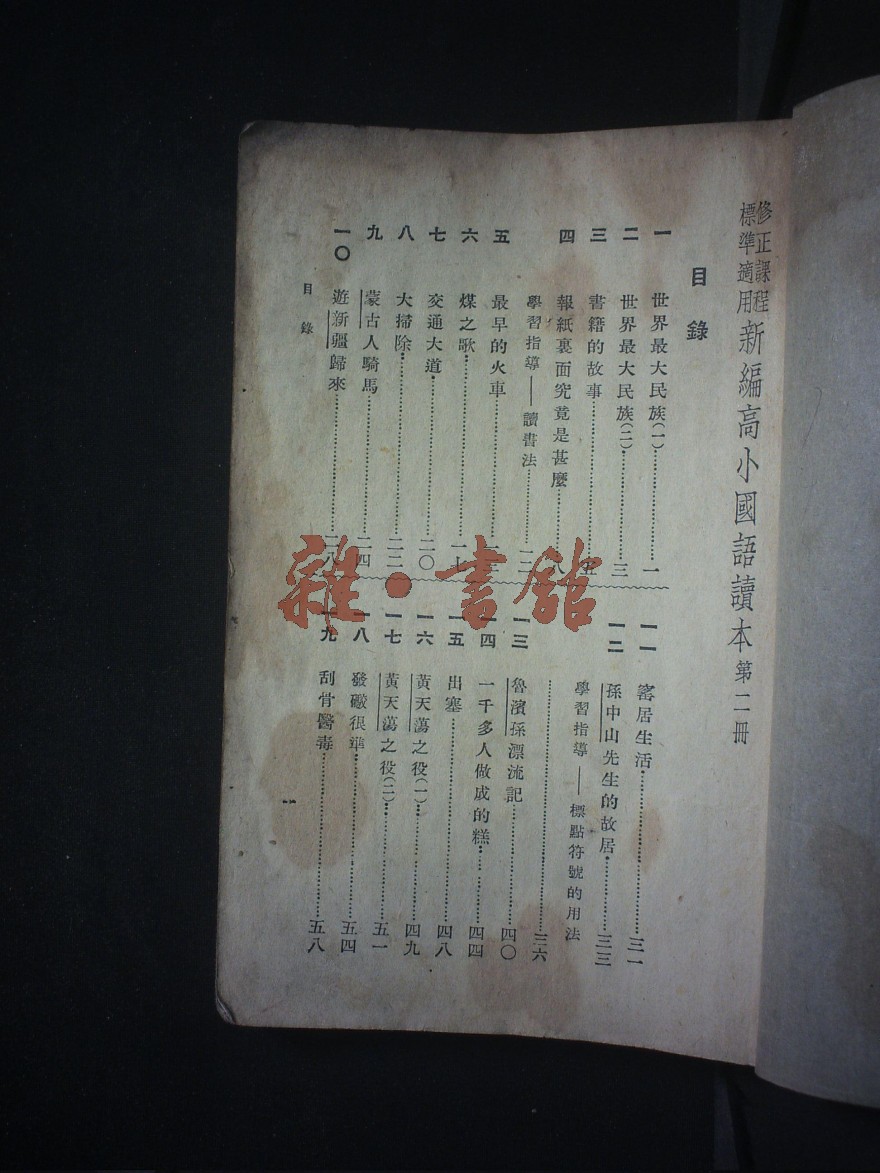 修正課程標準適用 新編高小國語讀本 第二冊
目錄
一 世界最大民族(一)………一
二 世界最大民族(二)………三
三 書籍的故事………五
四 報紙裏面究竟是甚麼………八
學習指導——讀書法………一二
五 最早的火車………
六 煤之歌………一七
七 交通大道………二〇
八 大掃除………二二
九 蒙古人騎馬………二四
一〇 遊新疆歸來………二八
一一 窰居生活………三一
一二 孫中山先生的故居………三三
學習指導——標點符號的用法
………三六
一三 魯濱孫漂流記………四〇
一四 一千多人做成的糕………四四
一五 出塞………四八
一六 黃天蕩之役(一)………四九
一七 黃天蕩之役(二)………五一
一八 發礮很準………五四
一九 刮骨醫毒………五八
目錄
一
雜·書館